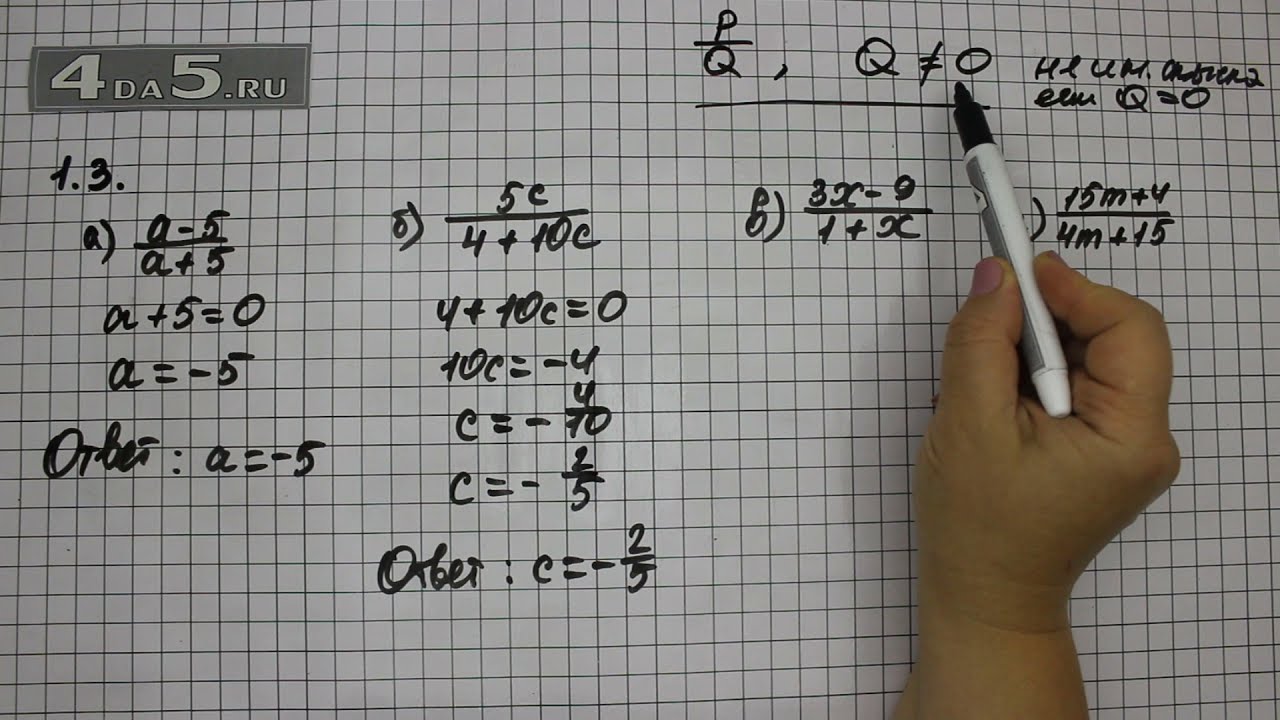 4DA5.RU
P/Q , Q ≠ 0
не им. смысла
если Q = 0
1.3.
а) (a-5)/(a+5)
a+5=0
a=-5
Ответ: a=-5
б) 5c/(4+10c)
4+10c=0
10c=-4
c=-4/10
c=-2/5
Ответ: c=-2/5
в) (3x-9)/(1+x)
) (15m+4)/(4m+15)